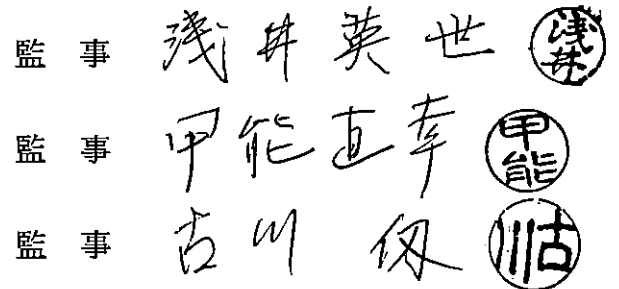 監事 浅井英世 浅井
監事 甲能直幸 甲能
監事 古川 古川